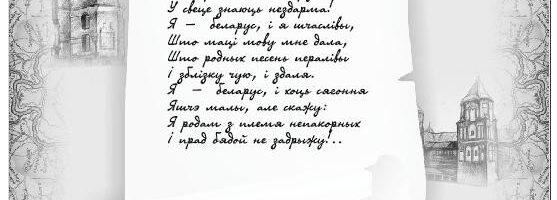 У свеце знаюць нездарма!
Я – беларус, і я шчаслівы,
Што маці мову мне дала,
Што родных песень пералівы
І зблізку чую, і здаля.
Я – беларус, і хоць сягоння
Яшчэ малы, але скажу:
Я родам з племя непакорных
І прад бядой не задрыжу!..